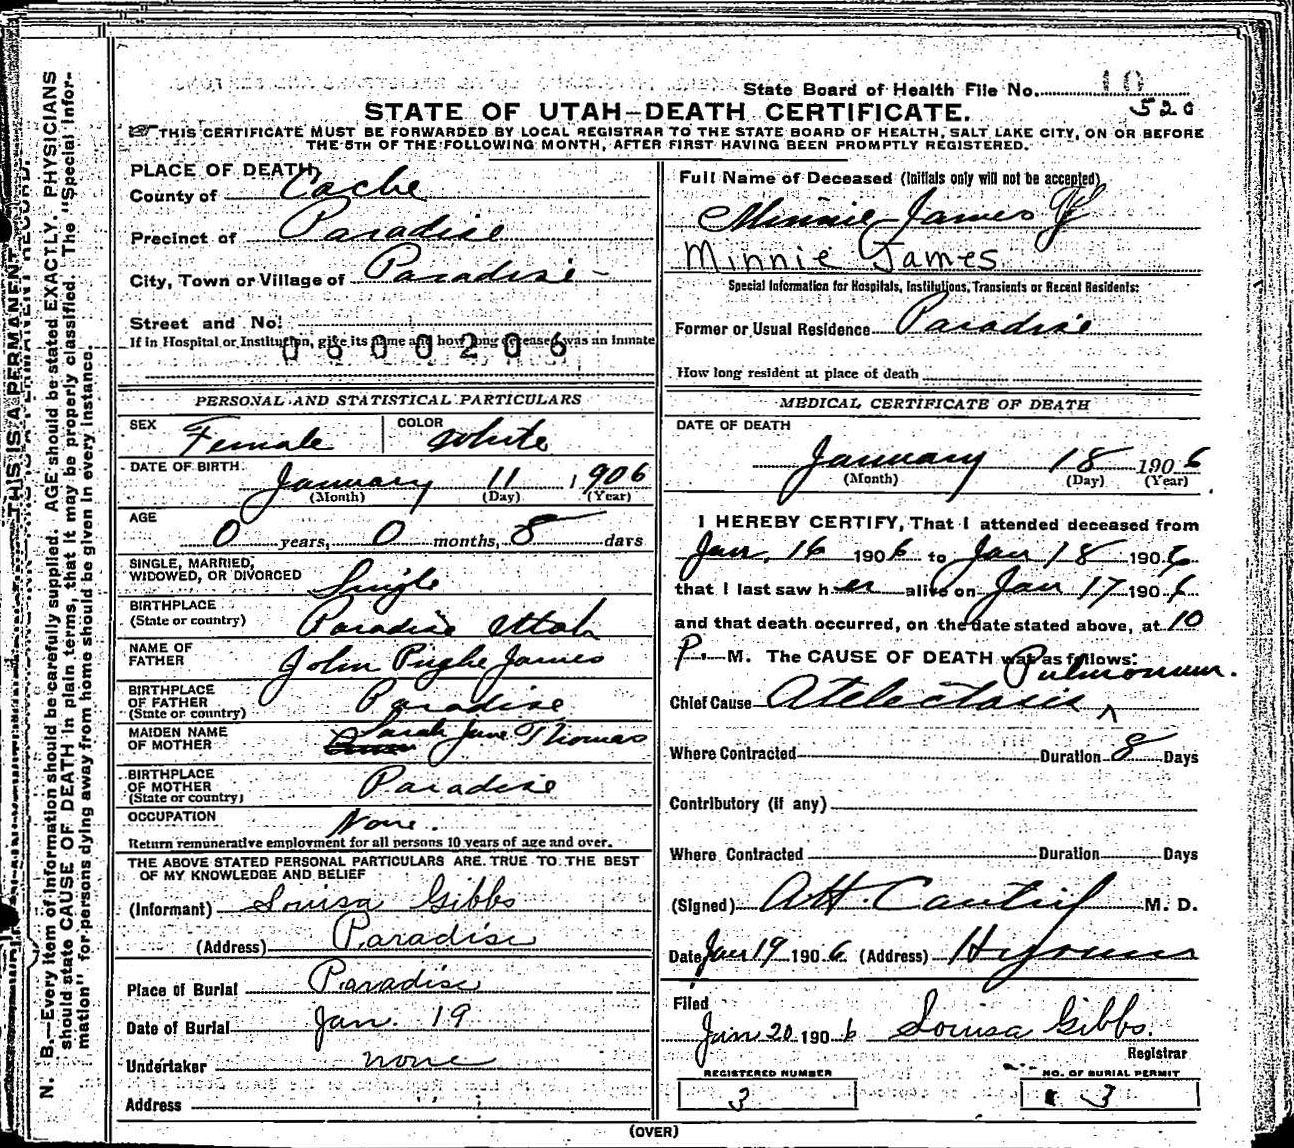 State Board of Health File No. 10
520
STATE OF UTAH—DEATH CERTIFICATE.
THIS CERTIFICATE MUST BE FORWARDED BY LOCAL REGISTRAR TO THE STATE BOARD OF HEALTH, SALT LAKE CITY, ON OR BEFORE
THE 5TH OF THE FOLLOWING MONTH, AFTER FIRST HAVING BEEN PROMPTLY REGISTERED.
PLACE OF DEATH,
County of Cache
Precinct of Paradise
City, Town or Village of Paradise
Street and No.
If in Hospital or Institution, give its name and how long deceased was an inmate
0600206
PERSONAL AND STATISTICAL PARTICULARS
SEX Female COLOR White
DATE OF BIRTH January 11, 1906
(Month) (Day) (Year)
AGE 0 years, 0 months, 8 days
SINGLE, MARRIED,
WIDOWED, OR DIVORCED Single
BIRTHPLACE
(State or country) Paradise Utah
NAME OF
FATHER John Pughe James
BIRTHPLACE
OF FATHER
(State or country) Paradise
MAIDEN NAME
OF MOTHER Sarah Jane Thomas
BIRTHPLACE
OF MOTHER
(State or country) Paradise
OCCUPATION None.
Return remunerative employment for all persons 10 years of age and over.
THE ABOVE STATED PERSONAL PARTICULARS ARE TRUE TO THE BEST
OF MY KNOWLEDGE AND BELIEF
(Informant) Louisa Gibbs
(Address) Paradise
Place of Burial Paradise
Date of Burial Jan. 19
Undertaker none
Address
Full Name of Deceased (Initials only will not be accepted)
Minnie James
Minnie James
Special Information for Hospitals, Institutions, Transients or Recent Residents:
Former or Usual Residence Paradise
How long resident at place of death
MEDICAL CERTIFICATE OF DEATH
DATE OF DEATH
January 18 1906
(Month) (Day) (Year)
I HEREBY CERTIFY, That I attended deceased from
Jan. 16 1906 to Jan 18 1906
that I last saw her alive on Jan 17 1906
and that death occurred, on the date stated above, at 10
P. M. The CAUSE OF DEATH was as follows:
Pulmonum.
Chief Cause Atelectasis ^
Where Contracted Duration 8 Days
Contributory (if any)
Where Contracted Duration Days
(Signed) M. D.
Date Jan 19 1906 (Address) Hyrum
Filed
Jan 20 1906 Louisa Gibbs.
Registrar
REGISTERED NUMBER NO. OF BURIAL PERMIT
3 3
(OVER)
THIS IS A PERMANENT RECORD.
N. B.—Every item of information should be carefully supplied. AGE should be stated EXACTLY. PHYSICIANS
should state CAUSE OF DEATH in plain terms, that it may be properly classified. The "Special Infor-
mation" for persons dying away from home should be given in every instance.